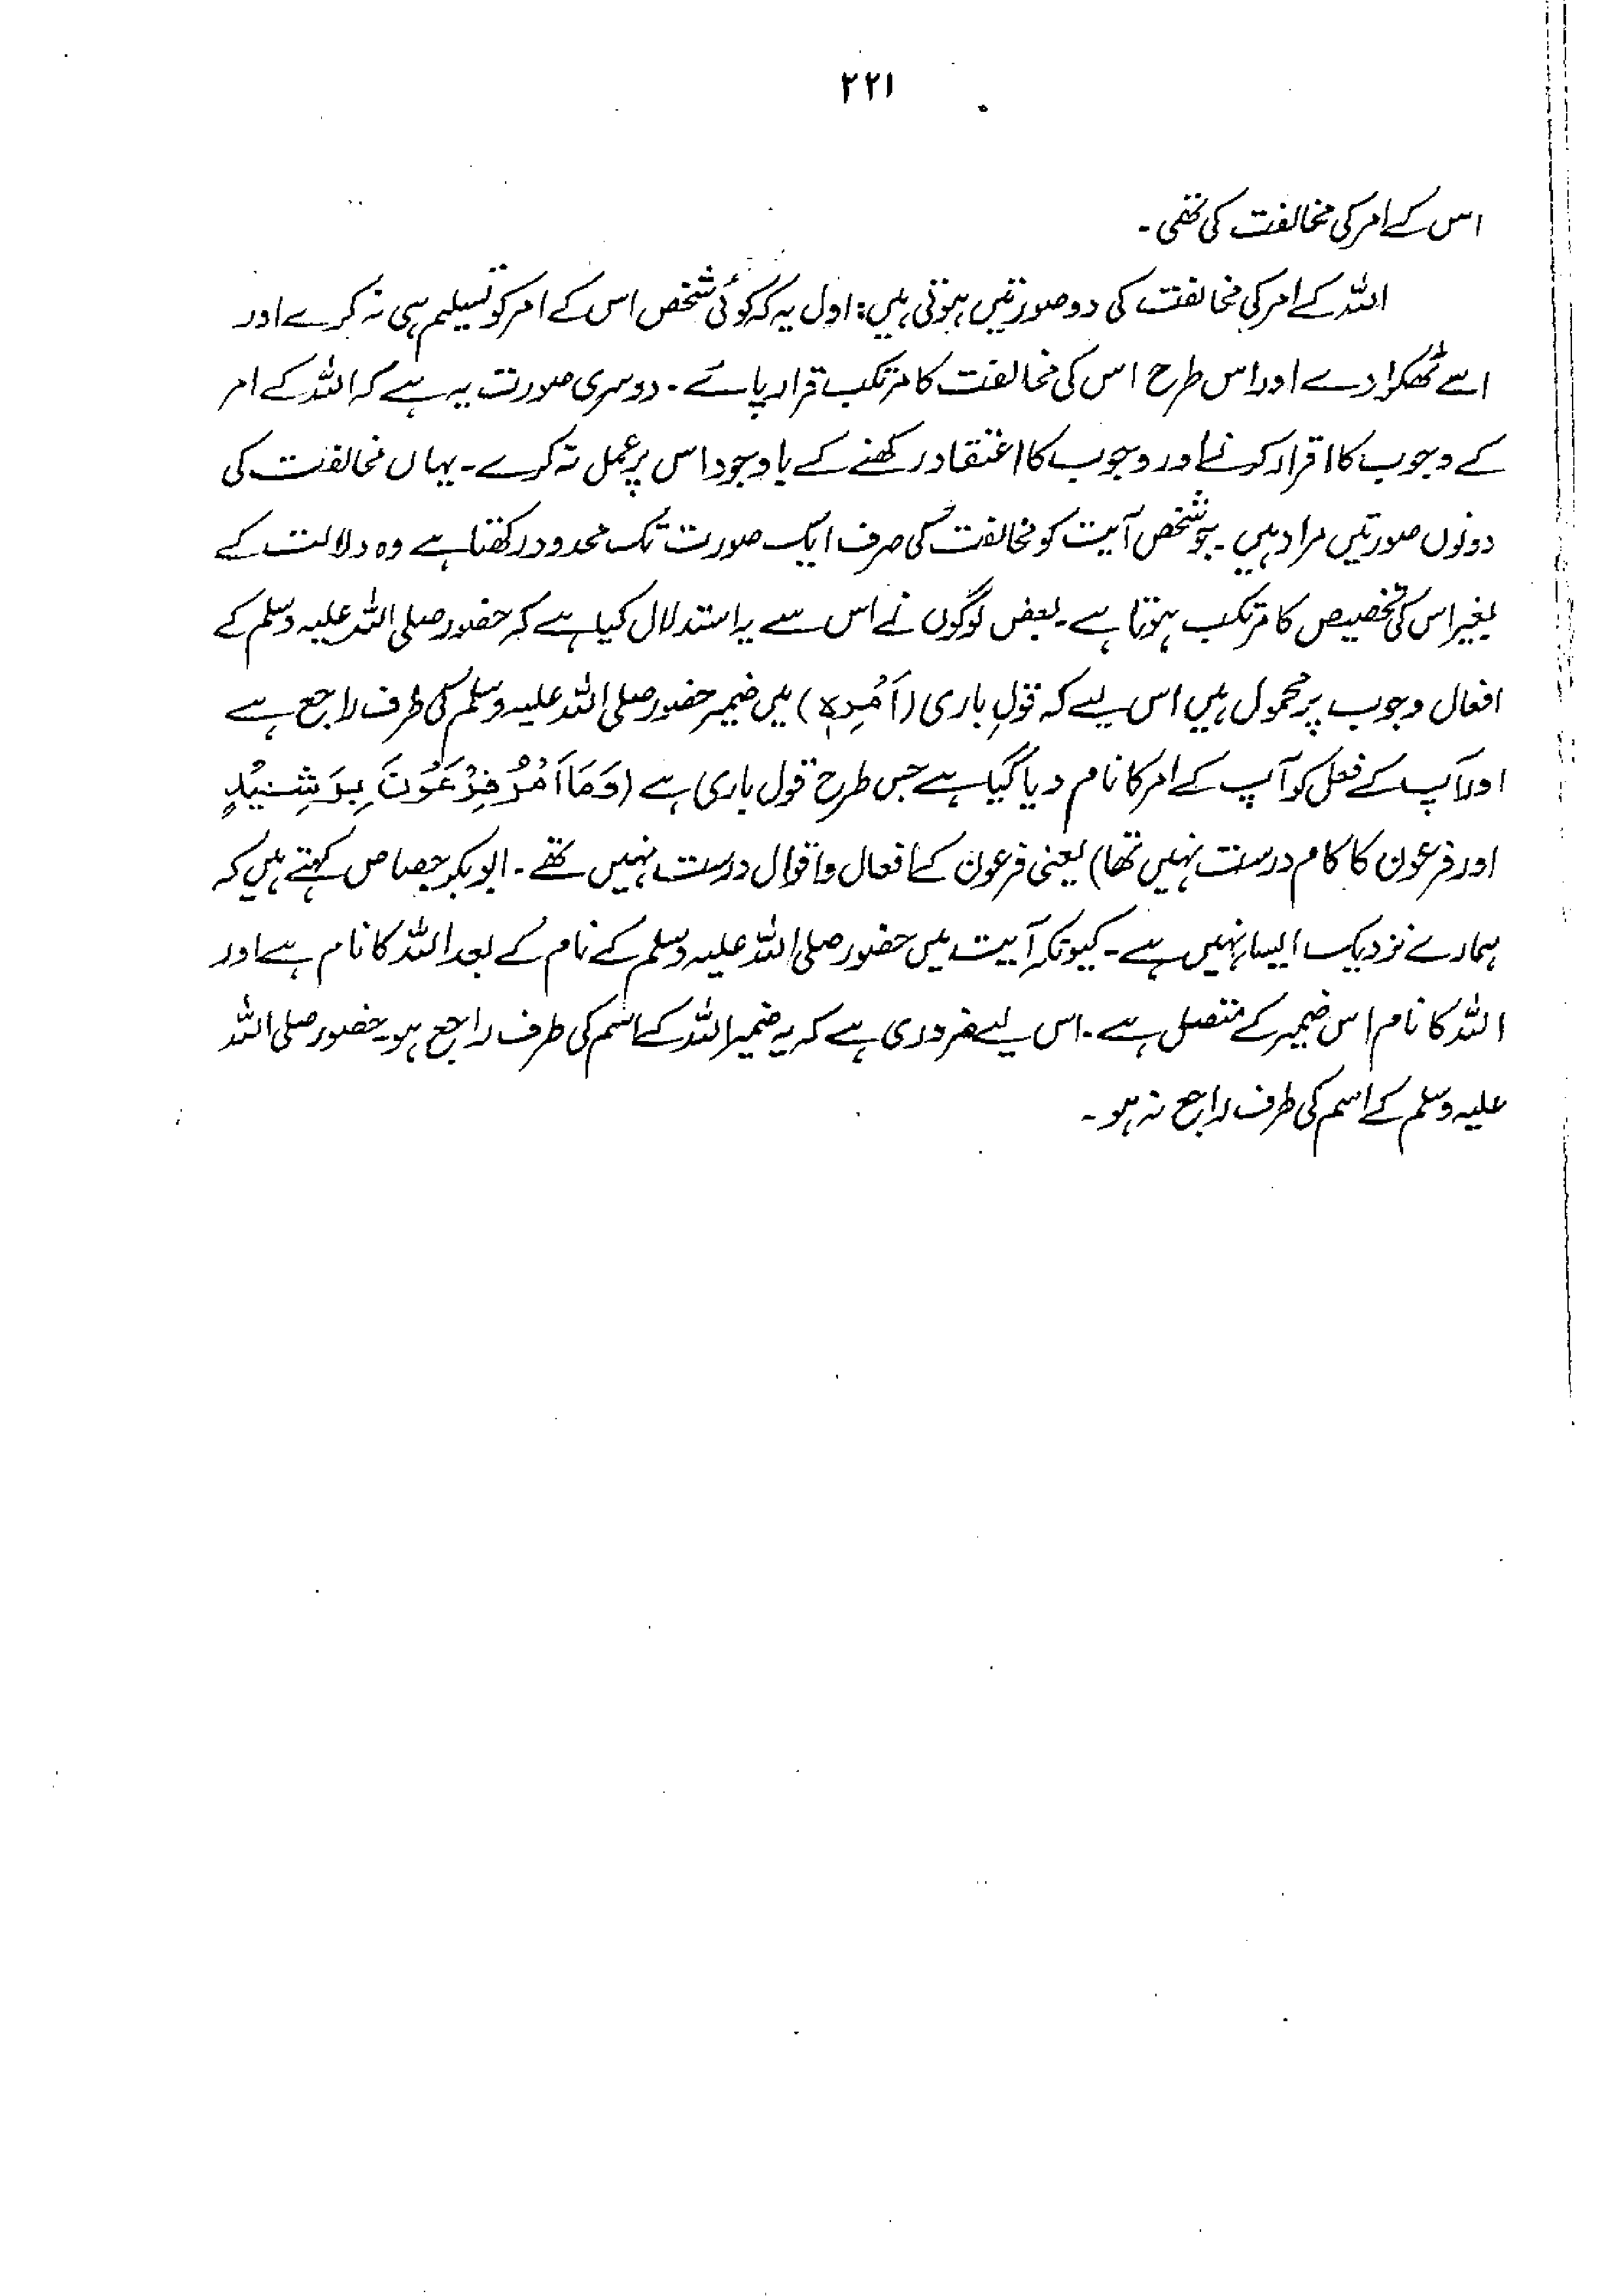 ۲۲۱
اس کے امر کی مخالفت کی تھی۔
اللہ کے امر کی مخالفت کی دو صورتیں ہوتی ہیں: اول یہ کہ کوئی شخص اس کے امر کو تسلیم ہی نہ کرے اور
اسے ٹھکرا دے اور اس طرح اس کی مخالفت کا مرتکب قرار پائے۔ دوسری صورت یہ ہے کہ اللہ کے امر
کے وجوب کا اقرار کرنے اور وجوب کا اعتقاد رکھنے کے باوجود اس پر عمل نہ کرے۔ یہاں مخالفت کی
دونوں صورتیں مراد ہیں۔ جو شخص آیت کو مخالفت کی صرف ایک صورت تک محدود رکھتا ہے وہ دلالت کے
بغیر اس کی تخصیص کا مرتکب ہوتا ہے۔ بعض لوگوں نے اس سے یہ استدلال کیا ہے کہ حضور صلی اللہ علیہ وسلم کے
افعال وجوب پر محمول ہیں اس لیے کہ قولِ باری (اَمْرِہٖ) میں ضمیر حضور صلی اللہ علیہ وسلم کی طرف راجع ہے
اور آپ کے فعل کو آپ کے امر کا نام دیا گیا ہے جس طرح قول باری ہے (وَمَا اَمْرُ فِرْعَوْنَ بِرَشِیْدٍ
اور فرعون کا کام درست نہیں تھا) یعنی فرعون کے افعال و اقوال درست نہیں تھے۔ ابوبکر جصاص کہتے ہیں کہ
ہمارے نزدیک ایسا نہیں ہے۔ کیونکہ آیت میں حضور صلی اللہ علیہ وسلم کے نام کے بعد اللہ کا نام ہے اور
اللہ کا نام اس ضمیر کے متصل ہے۔ اس لیے ضروری ہے کہ یہ ضمیر اللہ کے اسم کی طرف راجع ہو۔ حضور صلی اللہ
علیہ وسلم کے اسم کی طرف راجع نہ ہو۔